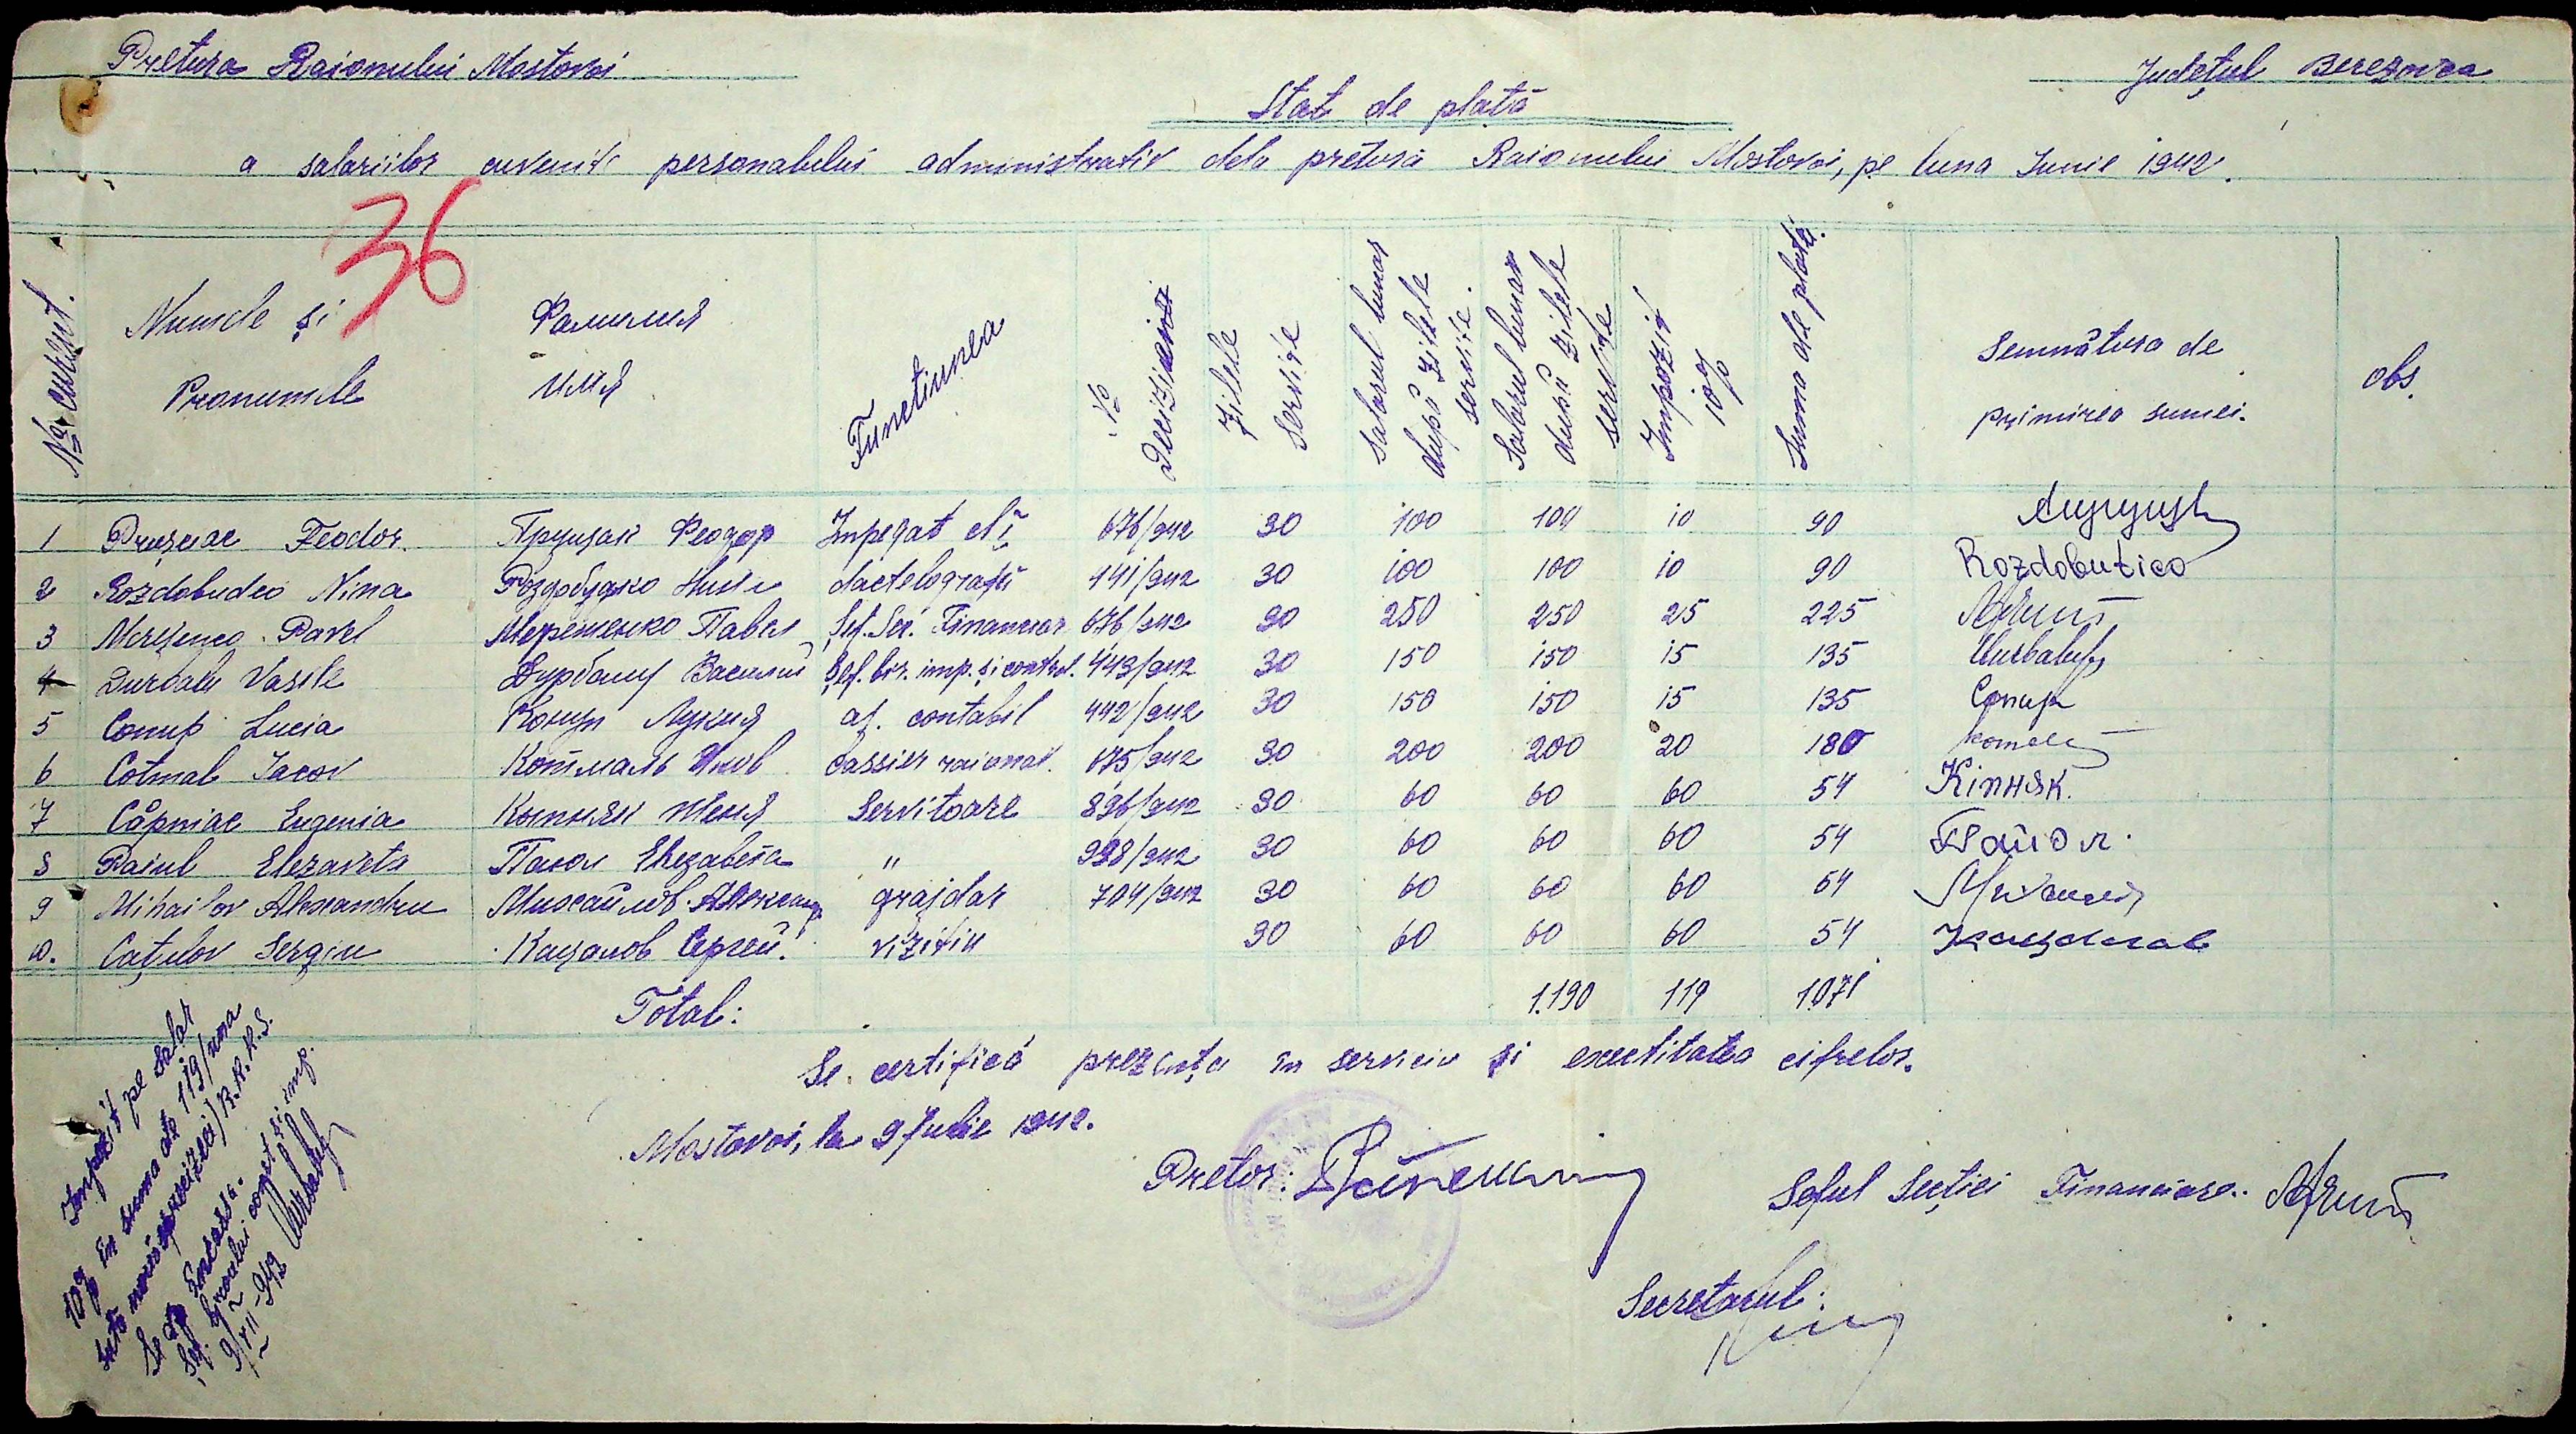 Pretura Raionului Mostovoi
Județul Berezovca
Stat de plată
a salariilor cuvenite personalului administrativ dela pretura Raionului Mostovoi, pe luna Iunie 1942.
36
№ curent. Numele și Pronumele Фамилия Имя Functiunea № Deciziei Zilele servite Salarul lunar după zilele servite. Salarul lunar după zilele servite Impozit 10% Suma de plată. Semnătura de primirea sumei. obs.
1 Prușeac Feodor. Прущак Феодор Impegat cl. I 676/942 30 100 100 10 90
2 Rozdobudco Nina Роздобудко Нина dactelografă 441/942 30 100 100 10 90 Rozdobutico
3 Mereșenco Pavel Мерещенко Павел Șef. Sec. Financiar 676/942 30 250 250 25 225
4 Durbalu Vasile Дурбалу Василий Șef. bir. imp. și control. 443/942 30 150 150 15 135
5 Conup Lucia Конуп Лукия aj. contabil 442/942 30 150 150 15 135 Conup
6 Cotmal Iacov Котмаль Яков Cassier raional. 675/942 30 200 200 20 180
7 Căpniac Eugenia Кипняк Женя Servitoare 896/942 30 60 60 60 54
8 Paiul Elezaveta Паюл Елезавета " 938/942 30 60 60 60 54
9 Mihailov Alexandru Михайлов Александр grajdar 704/942 30 60 60 60 54
10. Cațulov Sergiu Кацалов Сергей. vizitiu 30 60 60 60 54
Total: 1.190 119 1071
Se certifică prezența în serviciu și exactitatea cifrelor.
Mostovoi, la 9 Iulie 1942.
Pretor:
Șeful Secției Financiare.
Secretarul:
Impozit pe salar
10% în suma de 119/una
sută nouăsprezece) R.K.K.S.
Se va încassa.
Șef. biroului const. și imp.
9/VII-942